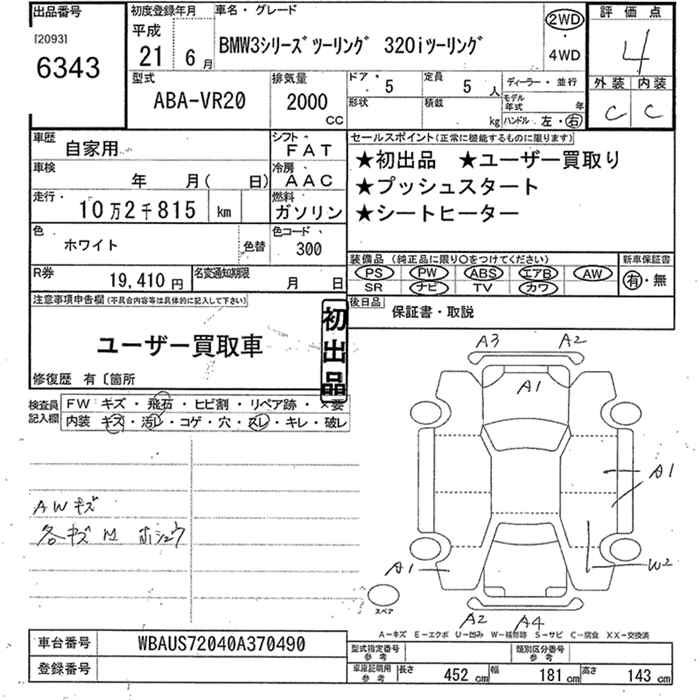 出品番号
[2093]
6343
初度登録年月
平成
21年 6月
車名・グレード
BMW3シリーズツーリング 320iツーリング
2WD
・
4WD
評価点
4
外装 内装
C C
型式
ABA-VR20
排気量
2000
CC
ドア・
5
形状
定員
5人
積載
kg
ディーラー・並行
モデル年式
年
ハンドル 左・右
車歴
自家用
シフト
FAT
車検
年 月( 日)
冷房
AAC
走行・
10万2千815 km
燃料
ガソリン
色
ホワイト
色替
色コード
300
R券
19,410円
名変通知期限
月 日
セールスポイント(正常に機能するものに限ります)
★初出品 ★ユーザー買取り
★プッシュスタート
★シートヒーター
装備品(純正品に限り○をつけてください)
PS PW ABS エアB AW
SR ナビ TV カワ
新車保証書
有・無
後日品
保証書・取説
注意事項申告欄(不具合内容等は具体的に記入して下さい)
ユーザー買取車
初出品
修復歴 有〔箇所
検査員記入欄
FW キズ・飛石・ヒビ割・リペア跡・×要
内装 キズ・汚レ・コゲ・穴・スレ・キレ・破レ
AWキズ
各キズM ホシュウ
A3 A2
A1
A1
W2
A1
A2 A4
スペア
A-キズ E-エクボ U-凹み W-補修跡 S-サビ C-腐食 XX-交換済
車台番号
WBAUS72040A370490
登録番号
型式指定番号
参考
類別区分番号
参考
車庫証明用
参考
長さ 452cm 幅 181cm 高さ 143cm